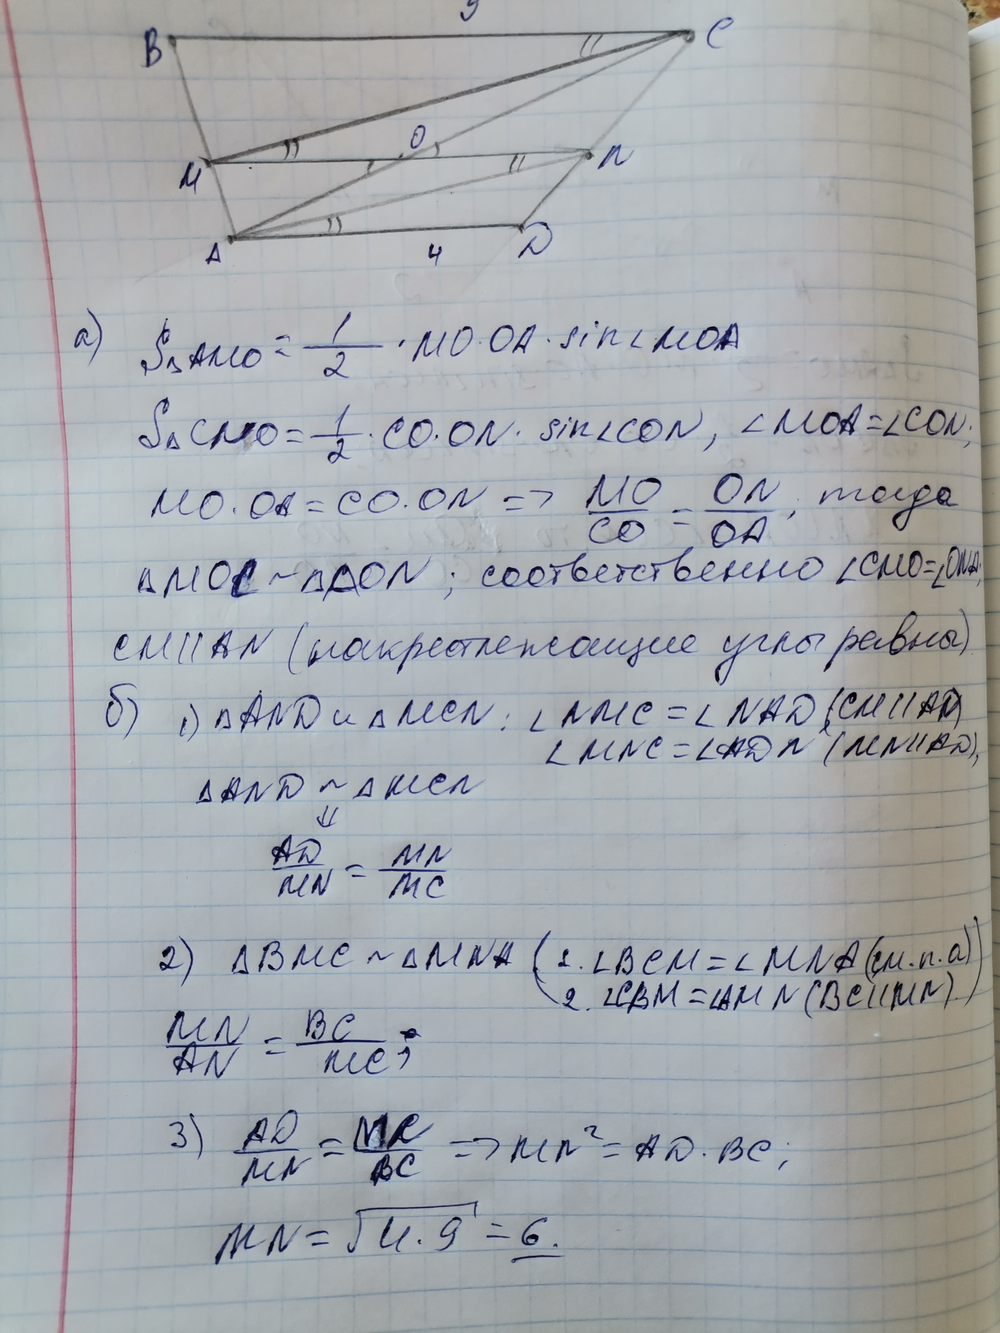 9
B C
M O N
A 4 D
а) S△AMO = 1/2 · MO · OA · sin∠MOA
S△CNO = 1/2 · CO · ON · sin∠CON, ∠MOA = ∠CON;
MO · OA = CO · ON => MO/CO = ON/OA, тогда
△MOC ~ △AON; соответственно ∠CMO = ∠ONA,
CM || AN (накрестлежащие углы равны)
б) 1) △AND и △MCN: ∠NMC = ∠NAD (CM || AD)
∠MNC = ∠ADN (MN || AD),
△AND ~ △MCN
⇓
AD/MN = MN/MC
2) △BMC ~ △MNA (1. ∠BCM = ∠MNA (см. п. а)
2. ∠CBM = ∠AMN (BC || MN).)
MN/AN = BC/MC;
3) AD/MN = MN/BC => MN² = AD · BC;
MN = √4 · 9 = 6.